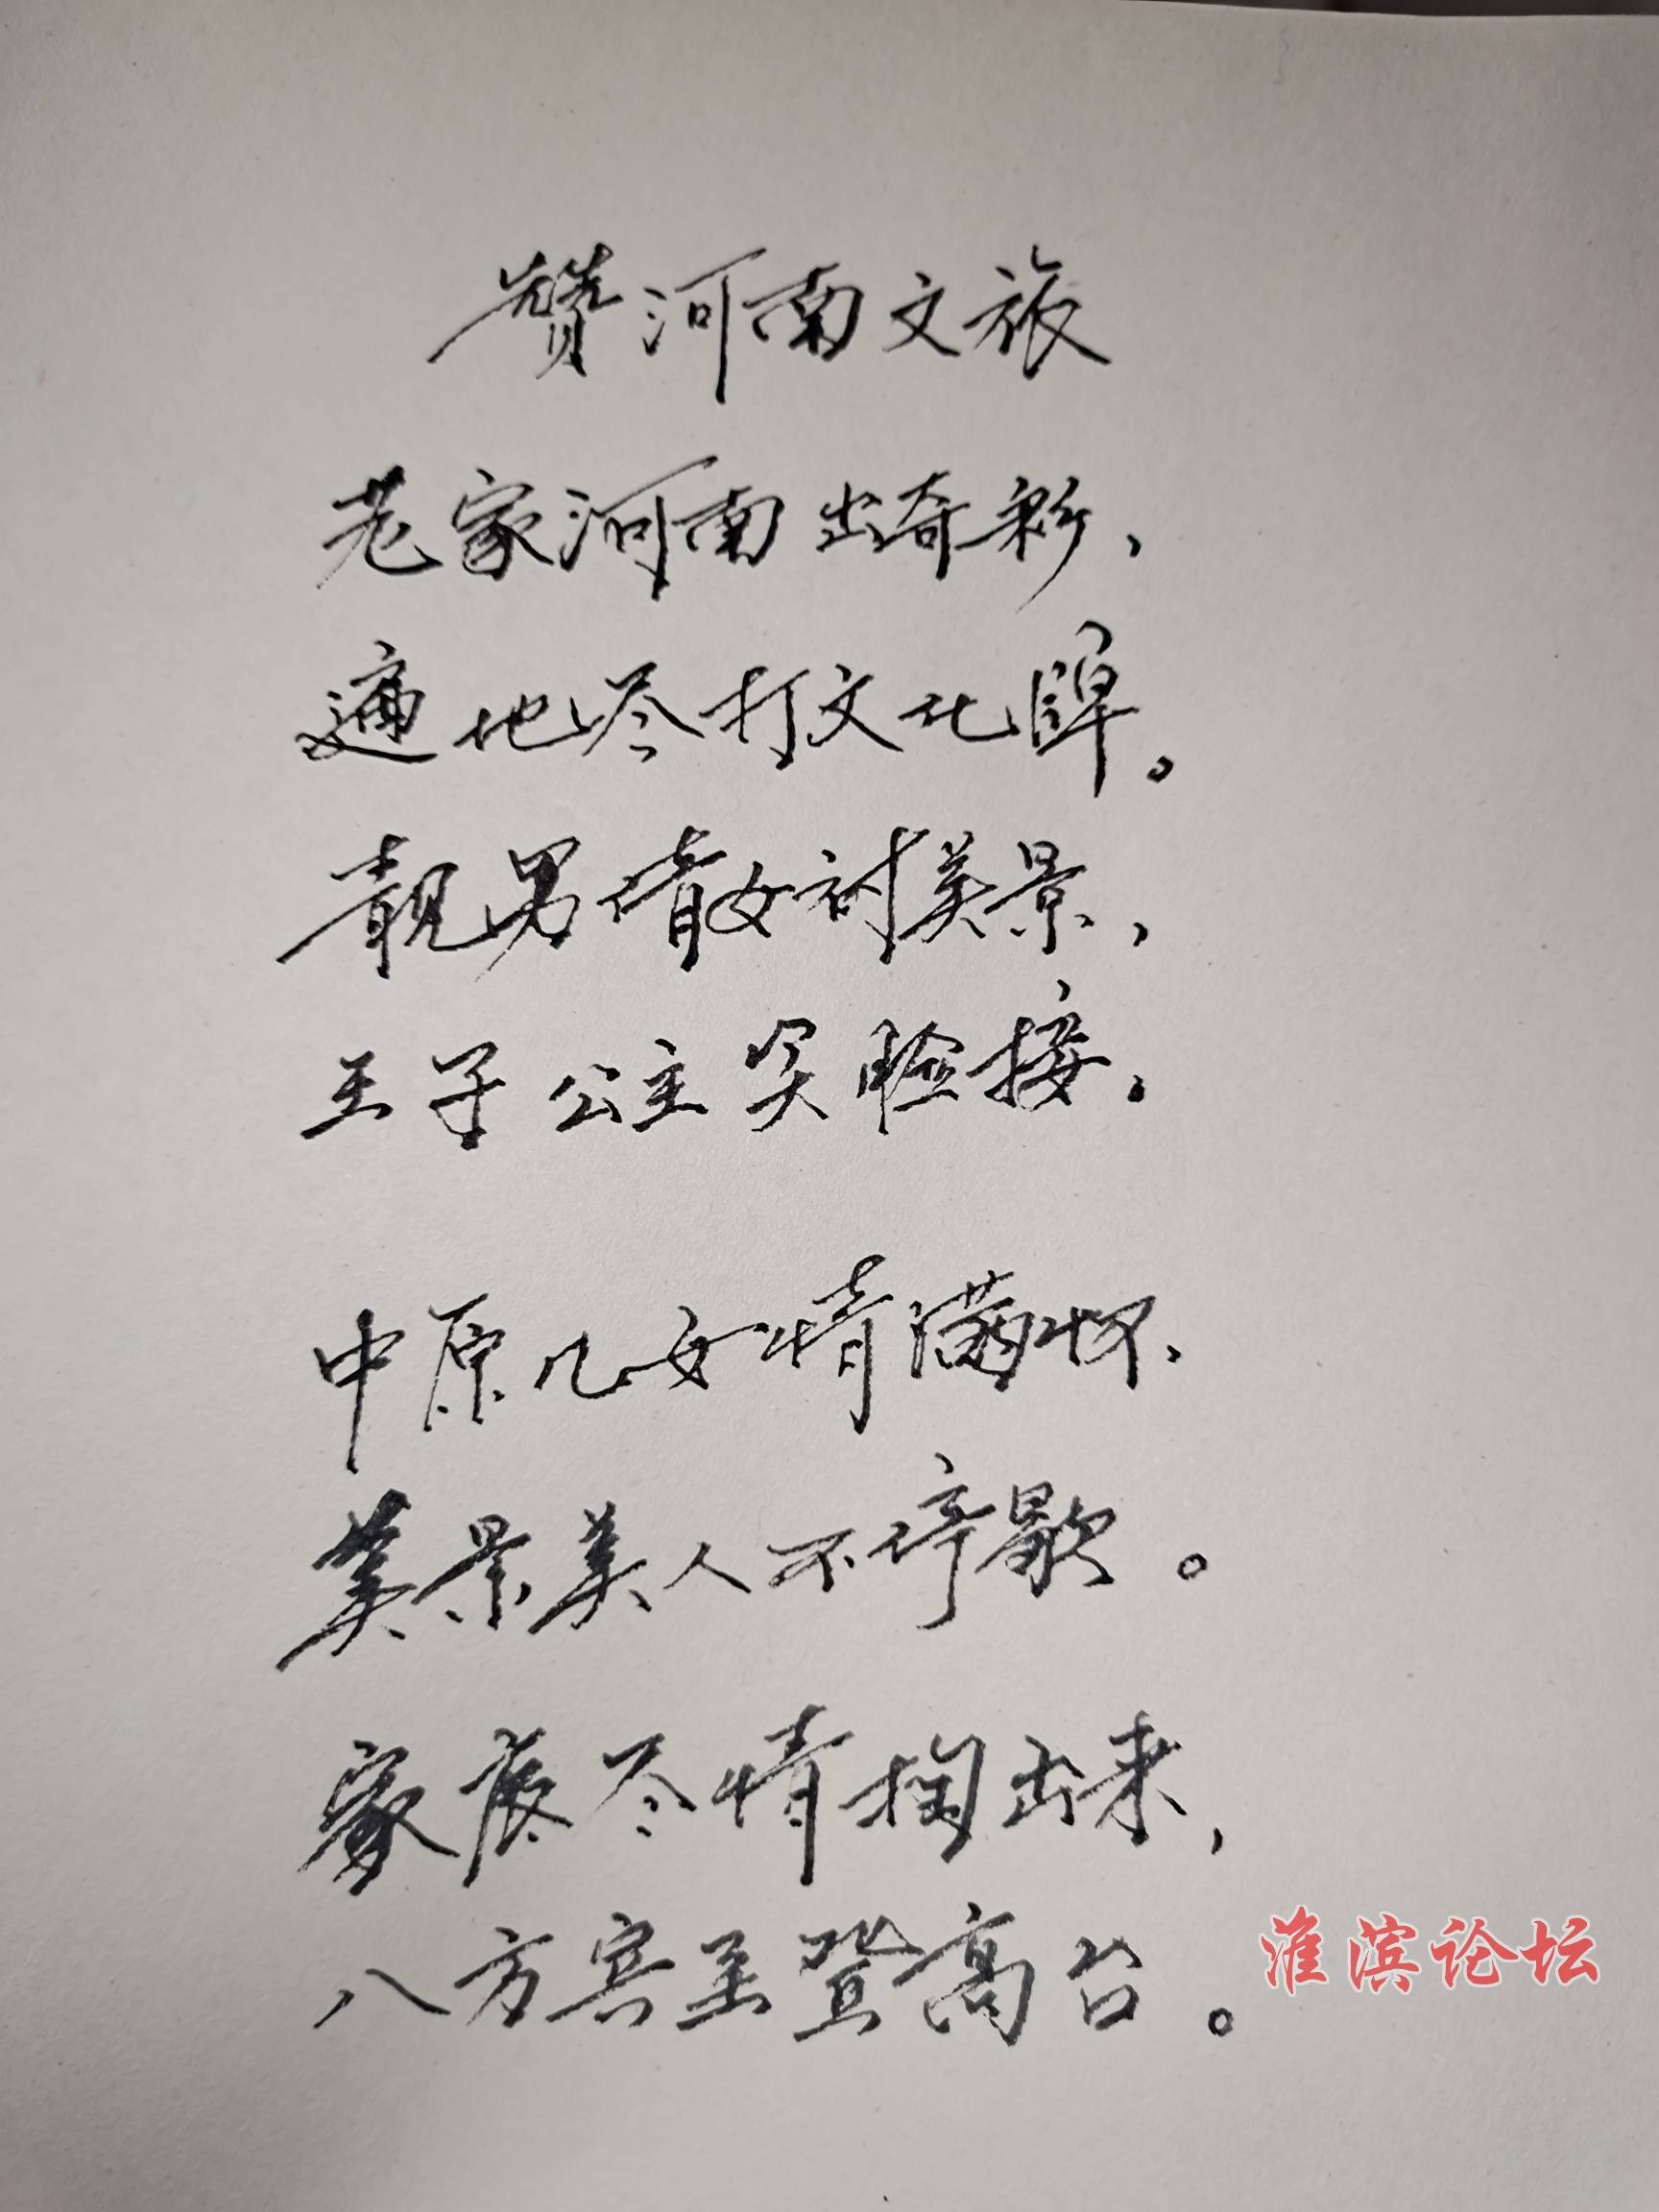 赞河南文旅
老家河南出奇彩，
遍地尽打文化牌。
靓男倩女衬美景，
王子公主笑脸接。
中原儿女情满怀，
美景美人不停歇。
家底尽情掏出来，
八方宾至登高台。
淮滨论坛